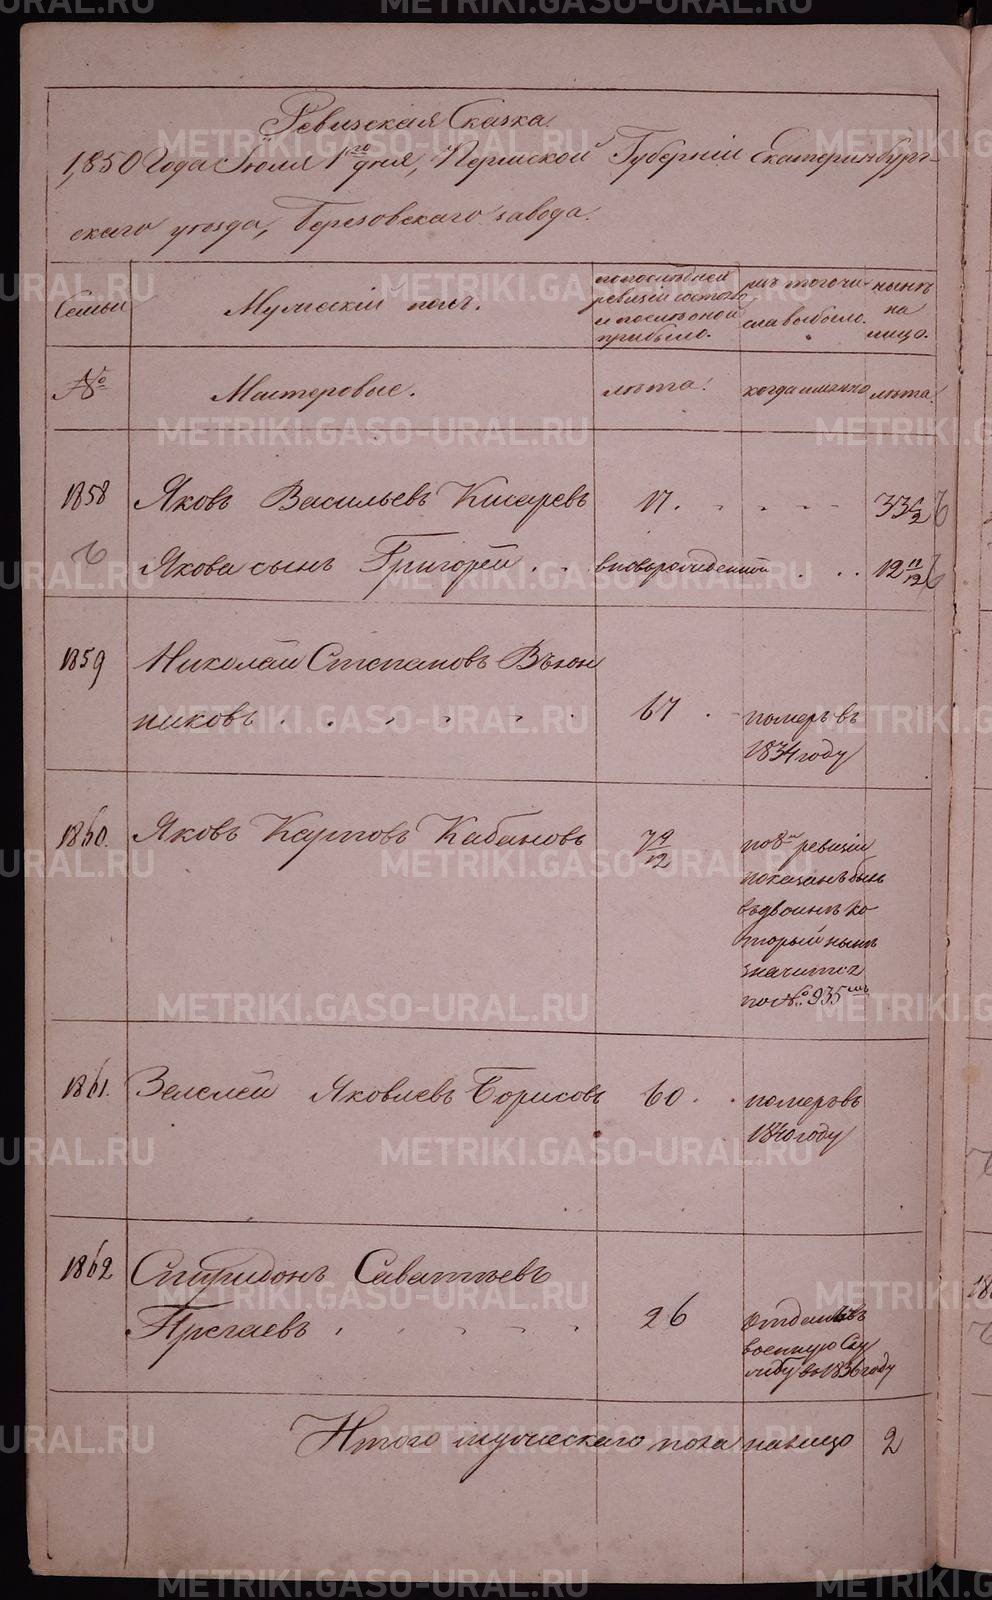 Ревизская Сказка
1,850 Года Іюля 1го дня, Пермской Губерніи Екатеринбург-
скаго уѣзда, Березовскаго завода.
Семьи
Мужескій полъ.
по послѣдней ревизіи состояло и после оной прибыло.
изъ того числа выбыло.
нынѣ на лицо.
№
Мастеровые.
лѣта.
когда именно
лѣта.
1858 Яковъ Васильевъ Кисаревъ 17. 33 6/12
Якова сынъ Григорей вновьрожденной 12 11/12
1859 Николай Степановъ Вьюн
никовъ 67 померъ въ
1834 году
1860. Яковъ Карповъ Кабановъ 7 9/12 по 8й ревизіи
показанъ былъ
въ двоинѣ ко
торый нынѣ
значится
по №: 935мъ
1861. Яковлевъ Борисовъ 60 померъ въ
1840 году
1862 Спиридонъ Саватѣевъ
26 Отданъ въ
военную Слу
жбу въ 1836 году
Итого мужескаго пола налицо 2
METRIKI.GASO-URAL.RU